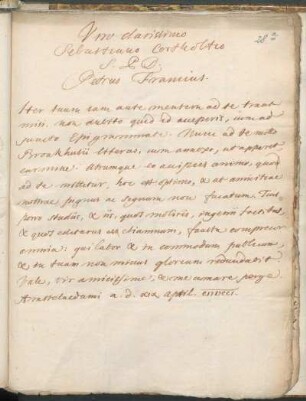 Viro clarissimo
Sebastiano Cortholto
S. P. D.
Petrus Francius.
Iter tuum jam ante mentem ad te
misi. non dubito quin id acceperis, cum ad
juncto Epigrammate. Nunc ad te mitto
Broukhusii literas, cum annexo, ut apparet
carmine. Utrumque accipies animo, quo
ad te mittitur, hoc est optimo, & ut amicitiae
nostrae pignus ac signum non fucatum. Tuis
porro studiis, & iis, quos moliris, ingenii foetibus
& quos editurus es etiamnum, fausta comprecor
omnia: qui labor & in commodum publicum,
& in tuam non minus gloriam redundabit
Vale, vir amicissime, & me amare perge.
Amstelaedami a. d. April.